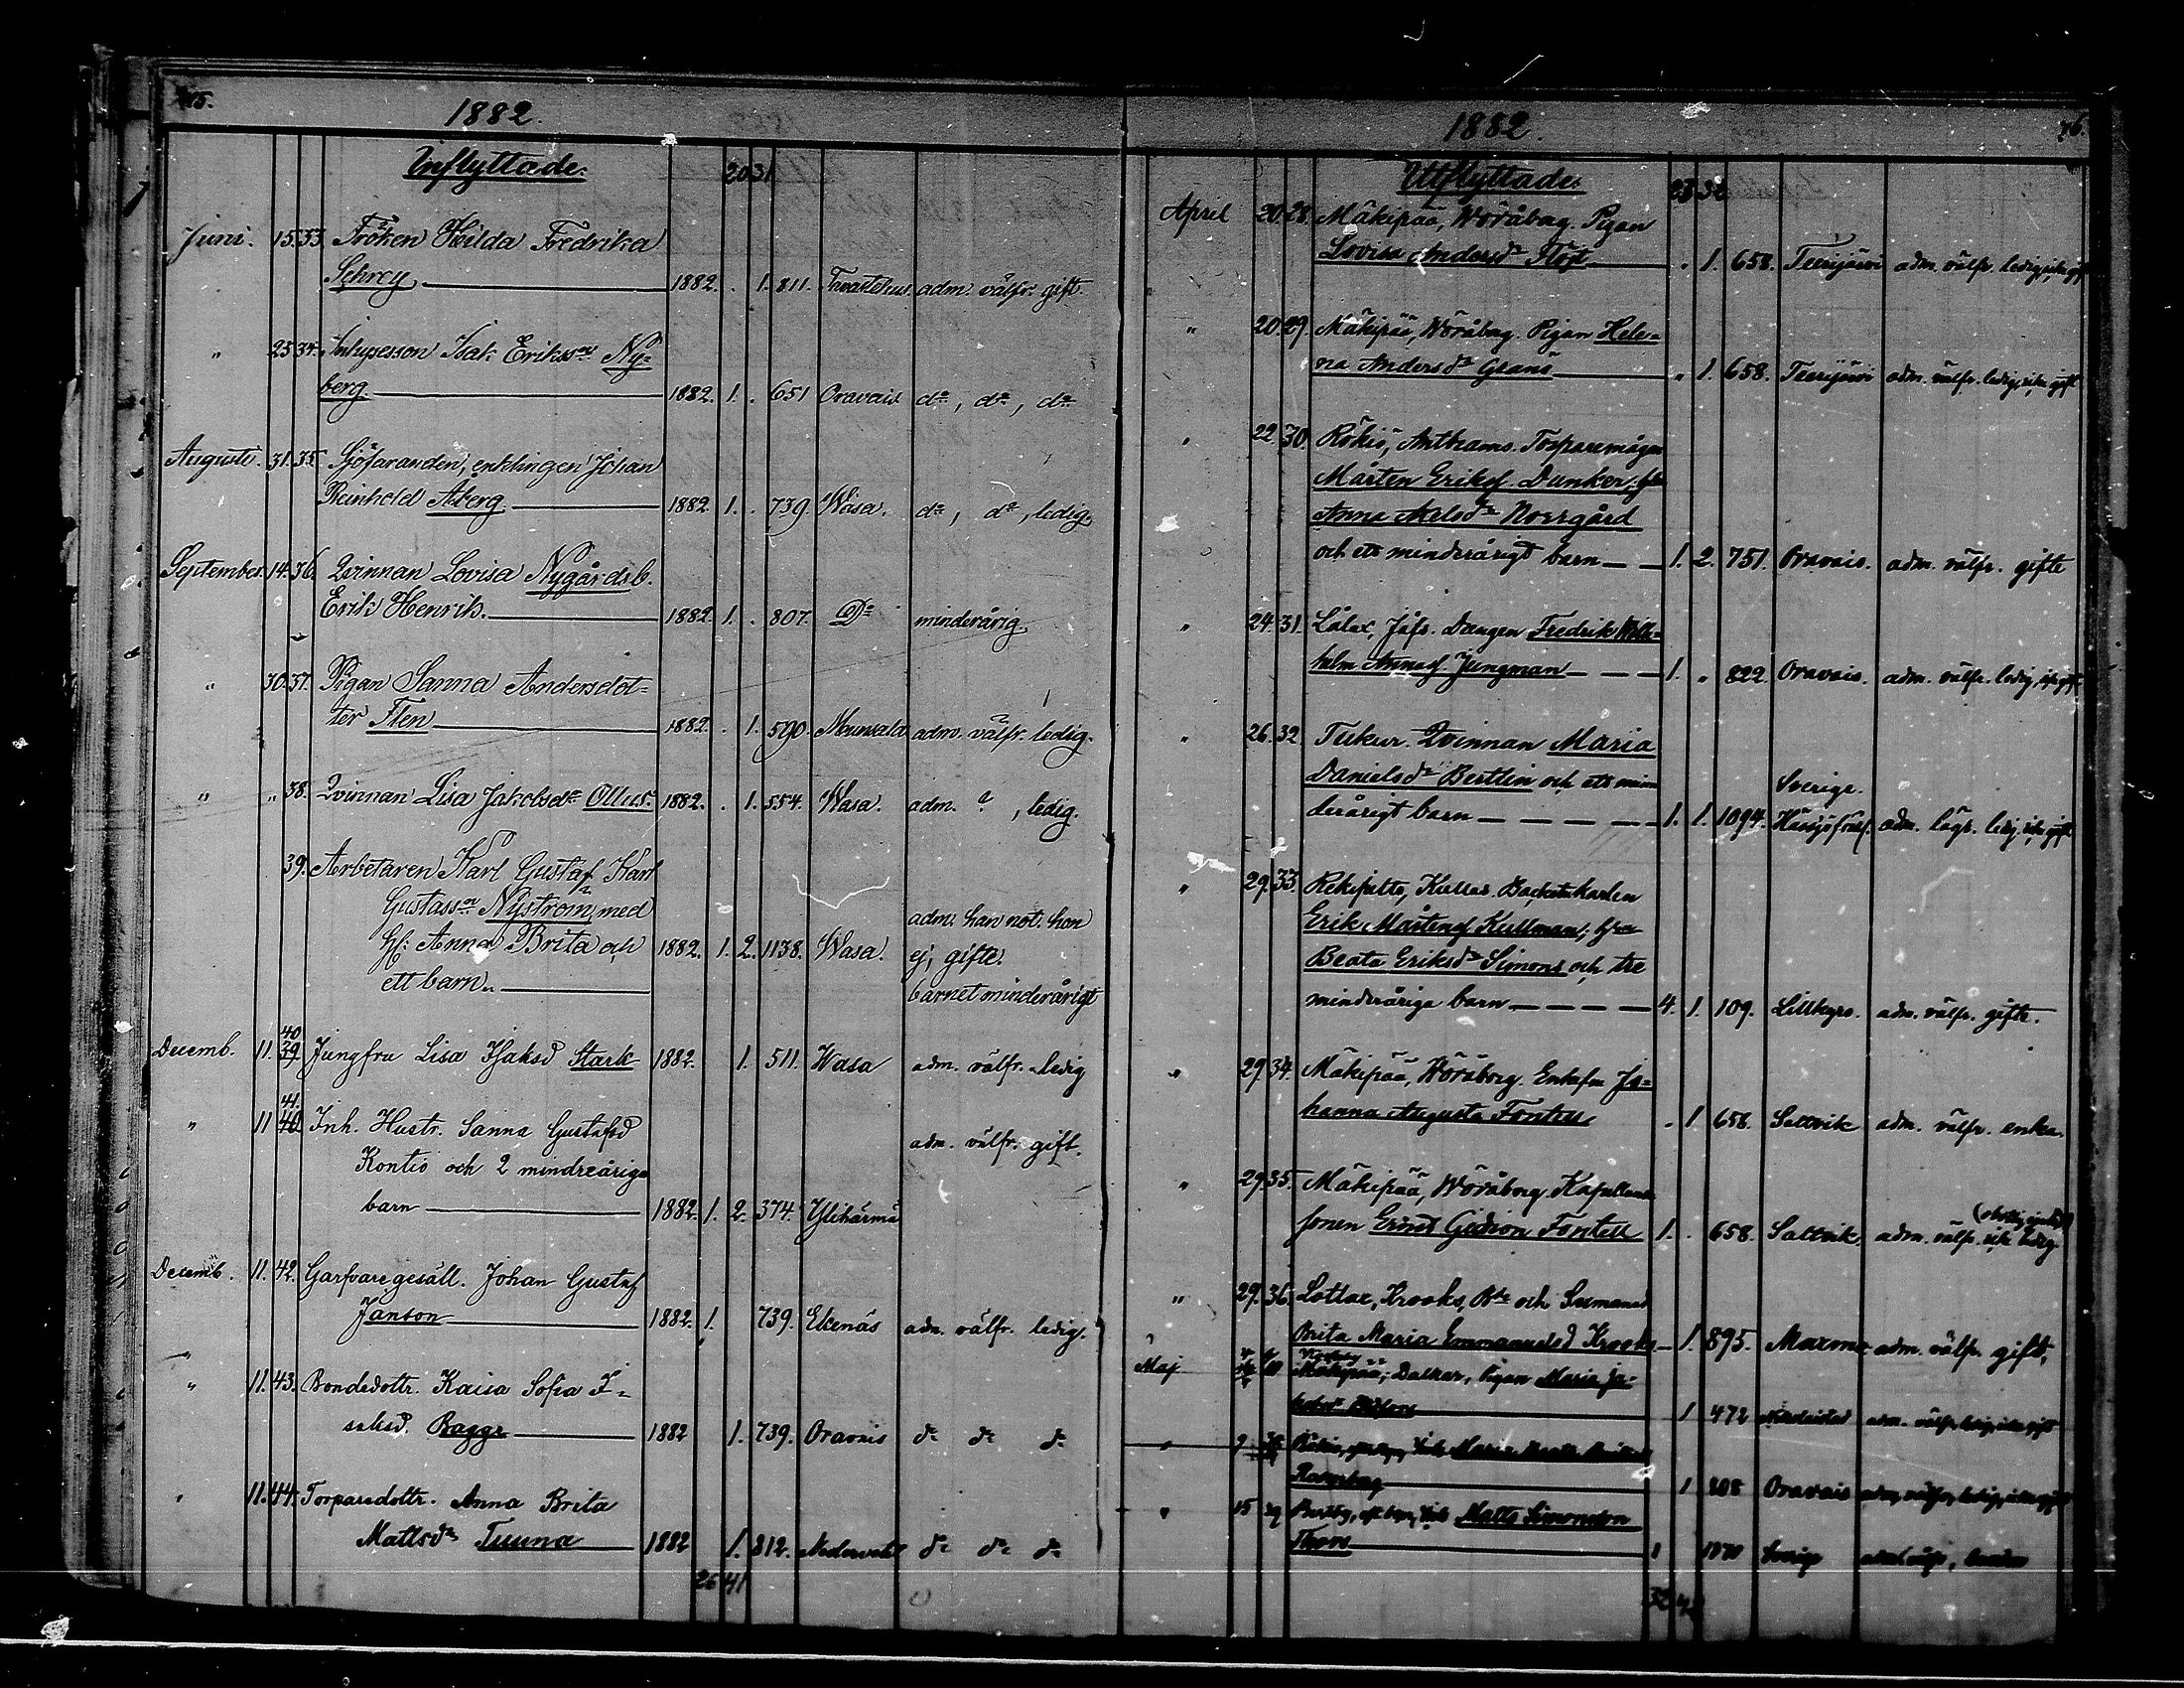 75.
1882.
Inflyttade.
20 31
Juni. 15. 33. Fröken Hilda Fredrika
Schrey 1882. . 1. 811. Tavastehus. adm. välfr. gift.
" 25 34. Inhysesson Isak Erikss:n Ny-
berg. 1882. 1. . 651 Oravais d:o, d:o, d:o
Augusti. 31. 35. Sjöfaranden, enklingen Johan
Reinhold Åberg. 1882. 1. . 739. Wasa. d:o, d:o, ledig.
September. 14. 36. Qvinnan Lovisa Nygårds b.
Erik Henrik. 1882. 1. . 807. D:o minderårig
" 30. 37. Pigan Sanna Andersdot-
ter Flen 1882. . 1. 590. Munsala adm. välfr. ledig.
" " 38. Qvinnan Lisa Jakobsd:r Ollus. 1882. . 1. 554. Wasa. adm. ? , ledig.
39. Arbetaren Karl Gustaf Karl
Gustafss:n Nyström, med
adm. han not. hon
h: Anna Brita och 1882. 1. 2. 1138. Wasa. ej, gifte.
ett barn.
barnet minderårigt
40
Decemb. 11. 39. Jungfru Lisa Isaksd Stark 1882. 1. 511. Wasa adm. välfr. ledig
41.
" 11 40. Inh. Hustr. Sanna Gustafsd adm. välfr. gift.
Kontio och 2 mindreåriga
barn 1882. 1. 2. 374. Ylihärmä
Decemb. 11. 42. Garfvaregesäll. Johan Gustaf
Janson 1882. 1. 739. Ekenäs adm. välfr. ledig.
" 11. 43. Bondedottr. Kaisa Sofia I-
saksd. Bagge 1882 1. 739. Oravais d:o d:o d:o
" 11. 44. Torparedottr. Anna Brita
Mattsd:r Tuuna 1882 1. 812. Nedervetil d:o d:o d:o
26 41
76.
1882.
Utflyttade.
23 32
April 20. 28. Mäkipää, Wöråborg. Pigan
Lovisa Andersd:r Flöjt " 1. 658. Teerijärvi adm. välfr. ledig, icke gift
" 20 29. Mäkipää, Wöråborg. Pigan Hele-
na Andersd:r Granö " 1. 658. Teerijärvi adm. välfr. ledig, icke gift
" 22. 30. Rökiö, Anthams. Torparemågen
Mårten Eriks. Dunker,
Anna Matsd:r Norrgård
och ett minderårigt barn 1. 2. 751. Oravais. adm. välfr. gifte
" 24. 31. Lålax, Jåfs. Drängen Fredrik Wil-
helm Annas. Jungman 1. " 822. Oravais. adm. välfr. ledig, icke gift
" 26. 32 Tuckur. Qvinnan Maria
Danielsd:r Bertlin och ett min-
Sverige.
derårigt barn 1. 1. 1094. Hässjö förs. adm. ledig, icke gift
" 29. 33. Rekipelto, Kullas. Backstukarlen
Erik Mårtens. Kullman,
Beata Eriksd:r Simons och tre
minderåriga barn 4. 1. 109. Lillkyro. adm. välfr. gifte.
" 29. 34. Mäkipää, Wöråborg. Enkefru Jo-
hanna Augusta Fontell " 1 658. Saltvik adm. välfr. enka.
" 29. 35. Mäkipää, Wöråborg. Kapellans
sonen Ernst Gideon Fontell 1. . 658. Saltvik. adm. välfr. icke ledig
" 29. 36. Lottax, Krooks, och
Brita Maria Emmanuelsd Krooks 1. 895. Maxmo adm. välfr. gift.
Maj Mäkipää, Dalkar, Pigan Maria Ja-
1 472 adm. välfr. ledig, icke gift
" 9 Maria
1 808 Oravais
" 15 Matts Simonson
Thors 1 Sverige
32 42